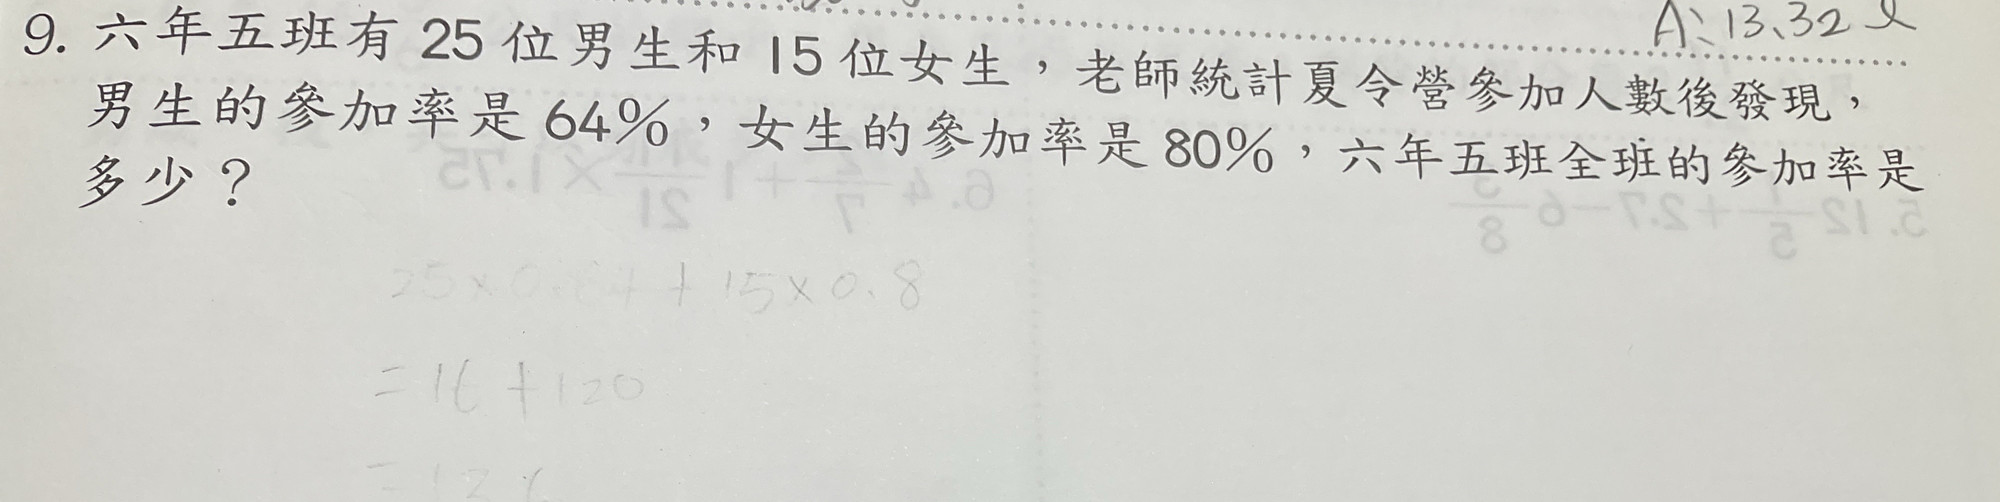 A:13.32 l
9. 六年五班有 25 位男生和 15 位女生，老師統計夏令營參加人數後發現，
男生的參加率是 64%，女生的參加率是 80%，六年五班全班的參加率是
多少？
25×0.64+15×0.8
=16+120
=136